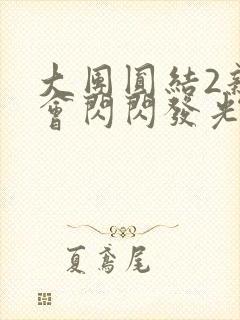 大團圓結2
會閃閃發光
夏鳶尾